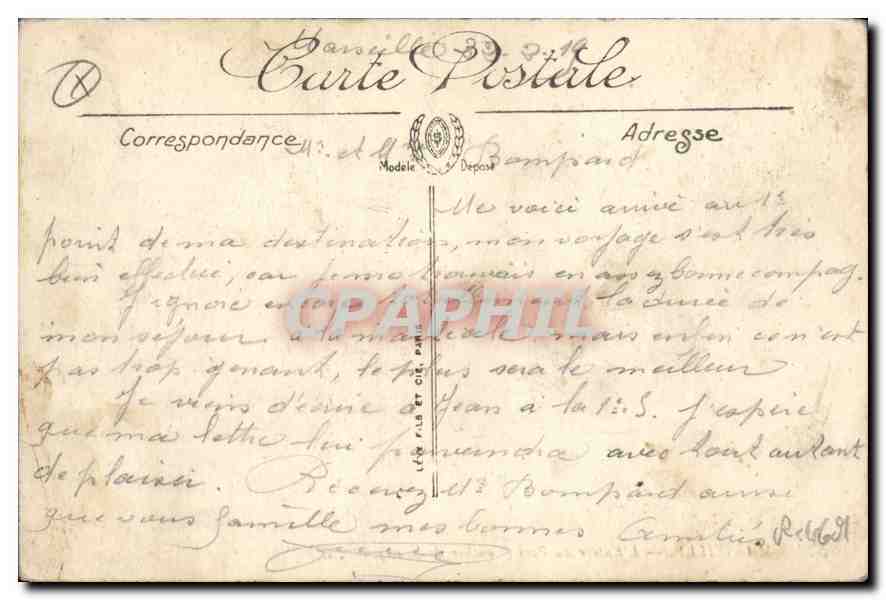 Marseille
Carte Postale
Correspondance
Adresse
Modèle Déposé
Mr. et Mme Bompard
Me voici arrivé au 1e
point de ma destination, mon voyage s'est très
bien effectué, car je me trouvais en assez bonne compag.
J'ignore encore la durée de
mon séjour à la mais enfin ce n'est
pas trop gênant, le plus sera le meilleur
Je viens d'écrire à Jean à la J'espère
que ma lettre lui parviendra avec tout autant
de plaisir. Recevez Mr Bompard ainsi
que vous famille mes bonnes Amitiés
LÉVY FILS ET CIE, PARIS
CPAPHIL